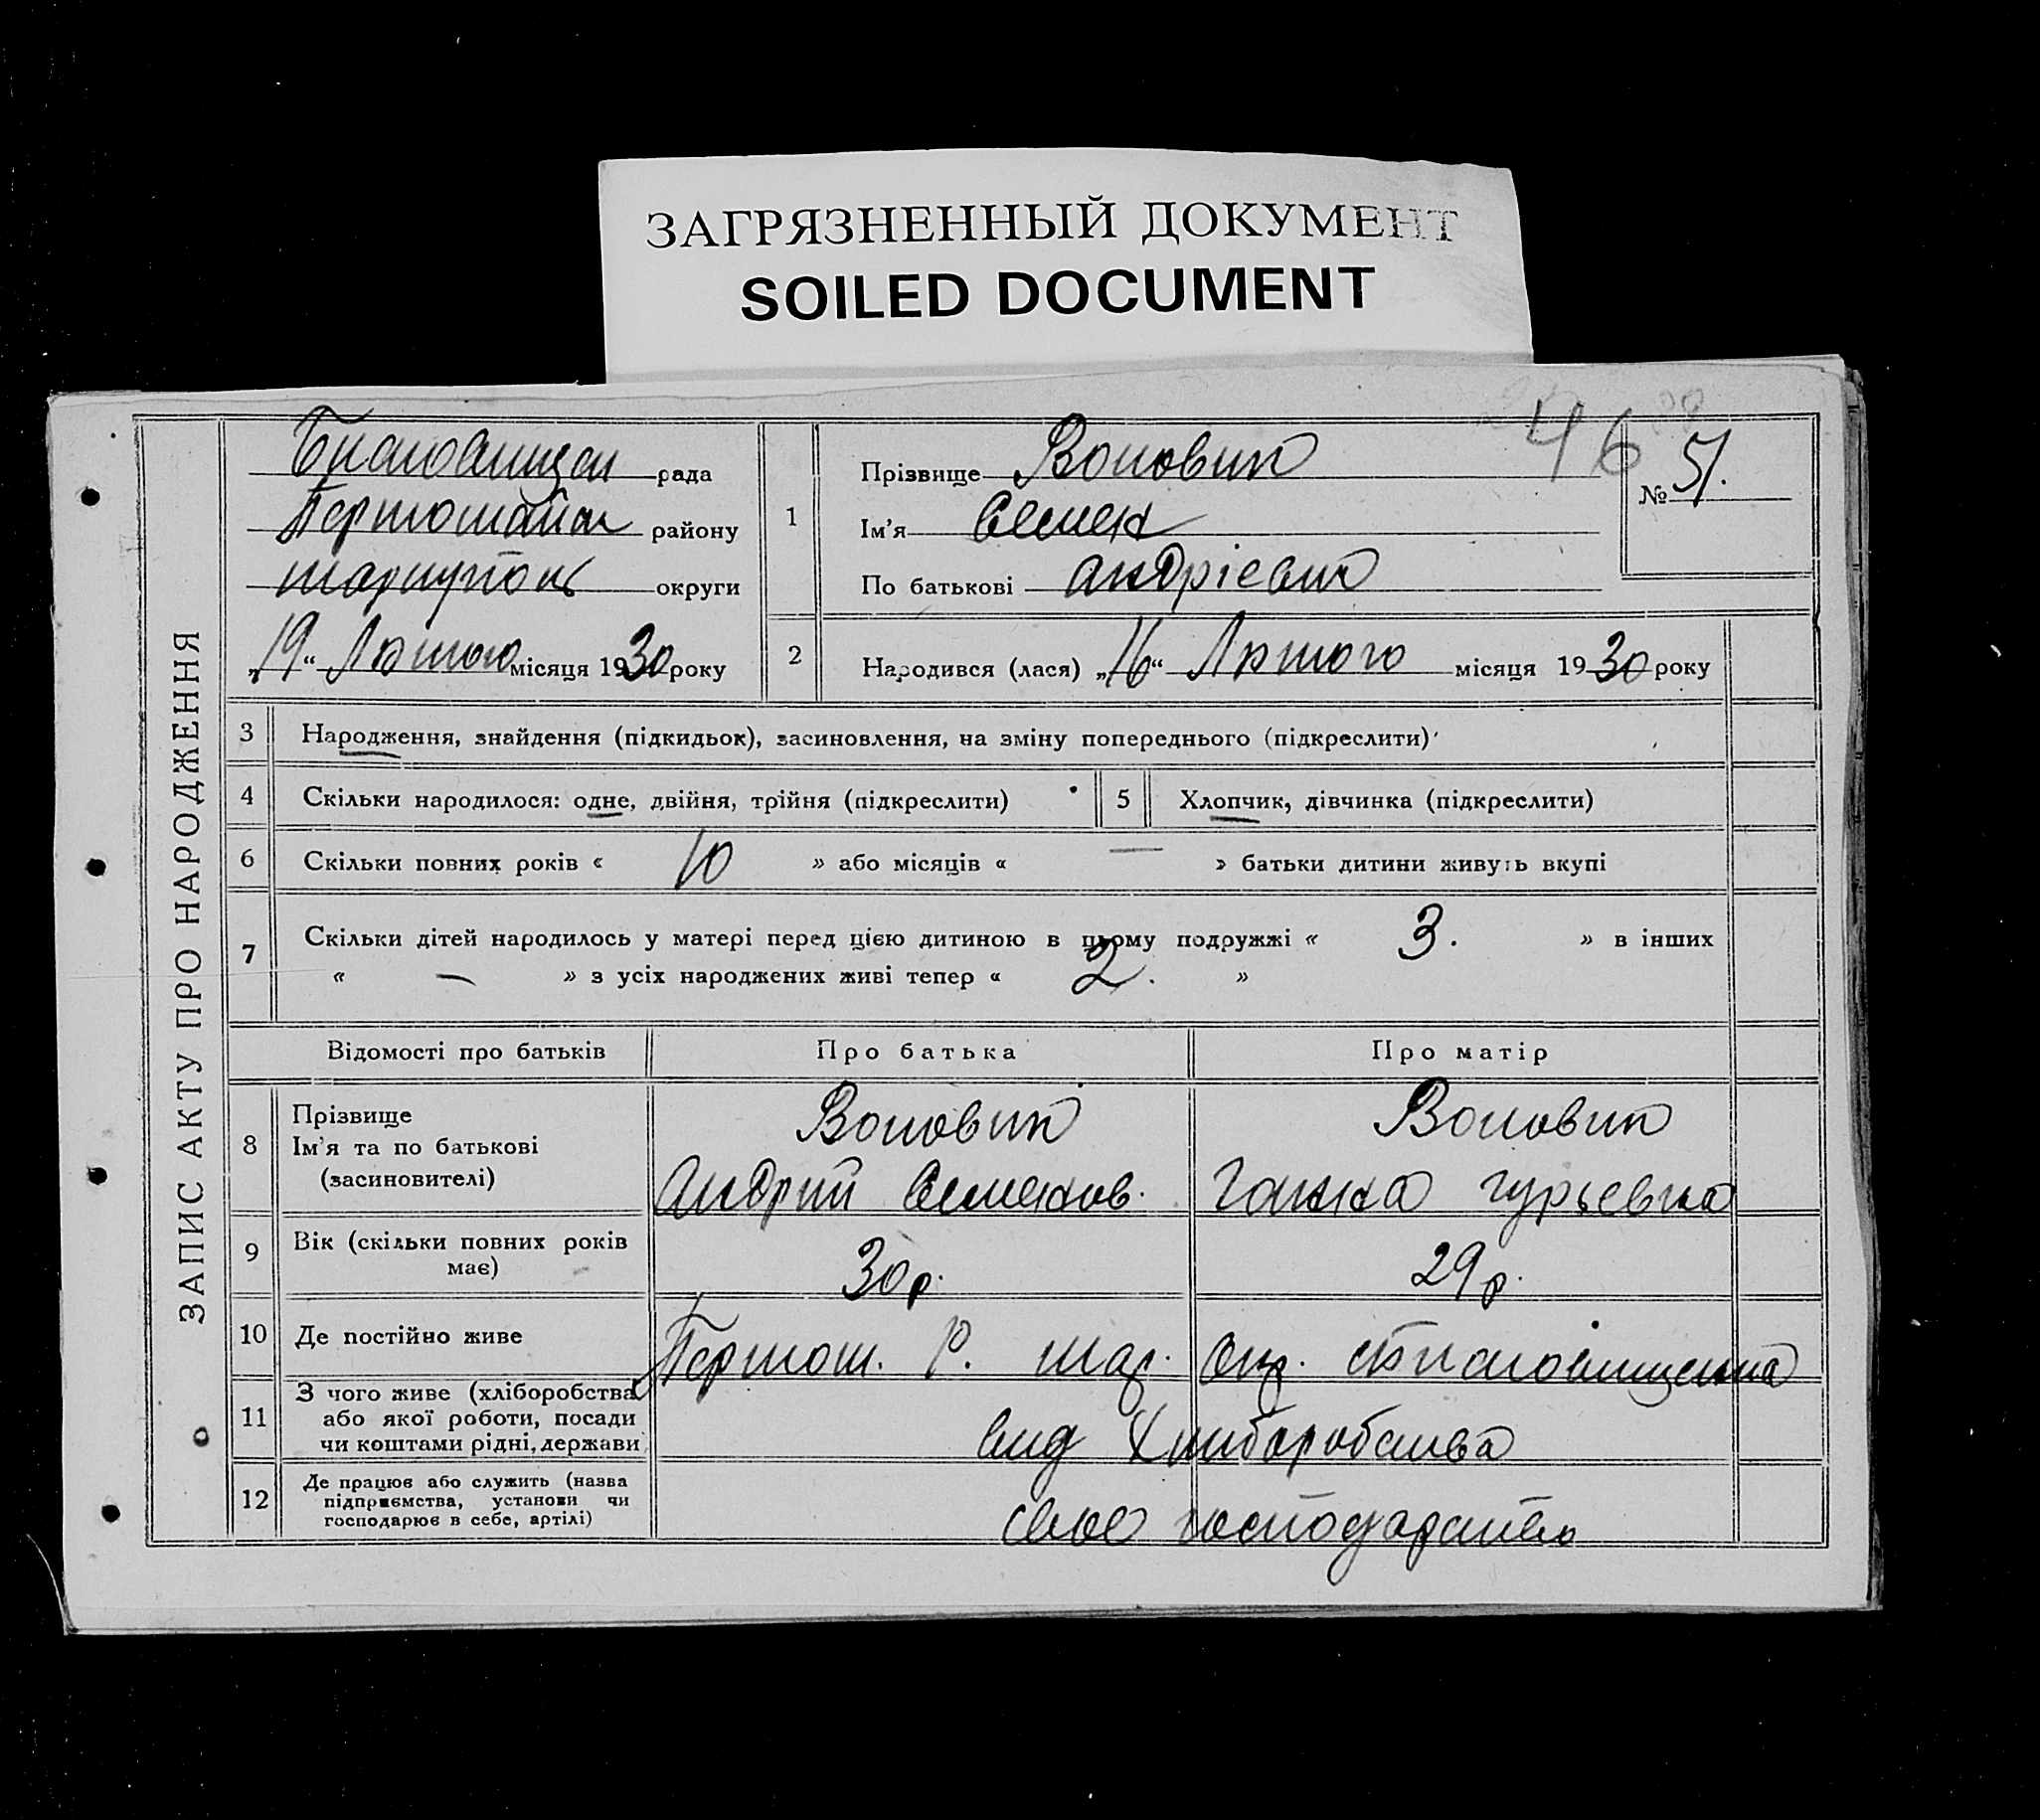 ЗАГРЯЗНЕННЫЙ ДОКУМЕНТ
SOILED DOCUMENT
ЗАПИС АКТУ ПРО НАРОДЖЕННЯ
рада
району
округи
„19“ Лютого місяця 1930 року
46
№ 51.
1
Прізвище Воловик
Ім'я Семен
По батькові Андрієвич
2 Народився (лася) „16“ Лютого місяця 1930 року
3 Народження, знайдення (підкидьок), засиновлення, на зміну попереднього (підкреслити)
4 Скільки народилося: одне, двійня, трійня (підкреслити)
5 Хлопчик, дівчинка (підкреслити)
6 Скільки повних років « 10 » або місяців « — » батьки дитини живуть вкупі
7 Скільки дітей народилось у матері перед цією дитиною в цьому подружжі « 3. » в інших
« — » з усіх народжених живі тепер « 2. »
Відомості про батьків Про батька Про матір
8 Прізвище
Ім'я та по батькові
(засиновителі)
Воловик
Андрій Семенов.
Воловик
Ганна Гурьевна
9 Вік (скільки повних років
має)
30 р. 29 р.
10 Де постійно живе
Р. Окр.
11 З чого живе (хліборобства
або якої роботи, посади
чи коштами рідні, держави
вид Хлиборобства
12 Де працює або служить (назва
підприємства, установи чи
господарює в себе, артілі)
своє господарство